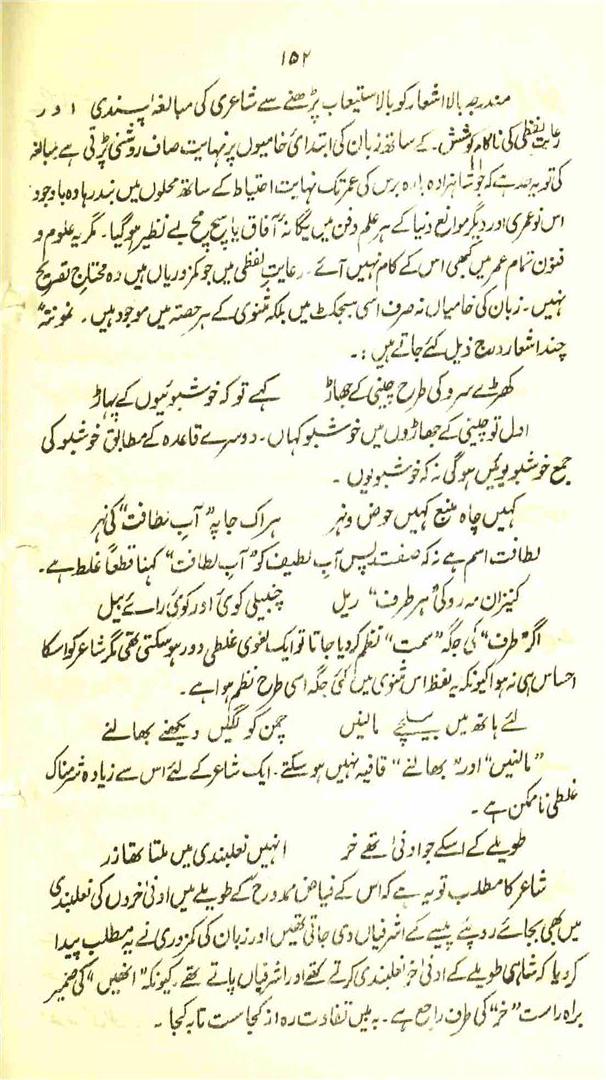 ۱۵۲
مندرجہ بالا اشعار کو بالاستیعاب پڑھنے سے شاعری کی مبالغہ پسندی اور
رعایت لفظی کی ناکام کوشش۔ کے ساتھ زبان کی ابتدائی خامیوں پر نہایت صاف روشنی پڑتی ہے مبالغہ
کی تو یہ حد ہے کہ جو شاہزادہ بارہ برس کی عمر تک نہایت احتیاط کے ساتھ محلوں میں بند رہا وہ باوجود
اس نوعمری اور دیگر موانع دنیا کے ہر علم و فن میں یگانہ آفاق یا سچ مچ بے نظیر ہو گیا۔ مگر یہ علوم و
فنون تمام عمر میں کبھی اس کے کام نہیں آئے۔ رعایت لفظی میں جو کمزوریاں ہیں وہ محتاج تصریح
نہیں۔ زبان کی خامیاں نہ صرف اسی سبجکٹ میں بلکہ مثنوی کے ہر حصہ میں موجود ہیں۔ نمونتہً
چند اشعار درج ذیل کئے جاتے ہیں :۔
کھڑے سرو کی طرح چینی کے جھاڑ کہے تو کہ خوشبوئیوں کے پہاڑ
اول تو چینی کے جھاڑوں میں خوشبو کہاں۔ دوسرے قاعدہ کے مطابق خوشبو کی
جمع خوشبوئیں ہو گی نہ کہ خوشبویوں۔
کہیں چاہ منبع کہیں حوض و نہر ہر اک جا پہ "آب لطافت" کی نہر
لطافت اسم ہے نہ کہ صفت پس آب لطیف کو "آب لطافت" کہنا قطعاً غلط ہے۔
کنیزان مہ رو کی "ہر طرف" ریل چنبیلی کوئی اور کوئی رائے بیل
اگر "طرف" کی جگہ "سمت" نظم کر دیا جاتا تو ایک لغوی غلطی دور ہو سکتی تھی مگر شاعر کو اسکا
احساس ہی نہ ہوا کیونکہ یہ لفظ اس مثنوی میں کئی جگہ اسی طرح نظم ہوا ہے۔
لئے ہاتھ میں بیلچے مالنیں چمن کو لگیں دیکھنے بھالنے
"مالنیں" اور "بھالنے" قافیہ نہیں ہو سکتے۔ ایک شاعر کے لئے اس سے زیادہ شرمناک
غلطی ناممکن ہے۔
طویلے کے اسکے جو ادنیٰ تھے خر انہیں نعلبندی میں ملتا تھا زر
شاعر کا مطلب تو یہ ہے کہ اس کے فیاض ممدوح کے طویلے میں ادنیٰ خروں کی نعلبندی
میں بھی بجائے روپئے پیسے کے اشرفیاں دی جاتی تھیں اور زبان کی کمزوری نے یہ مطلب پیدا
کر دیا کہ شاہی طویلے کے ادنیٰ خر نعلبندی کرتے تھے اور اشرفیاں پاتے تھے۔ کیونکہ "انھیں" کی ضمیر
براہ راست "خر" کی طرف راجع ہے۔ بہ بیں تفاوت رہ از کجاست تا بہ کجا۔